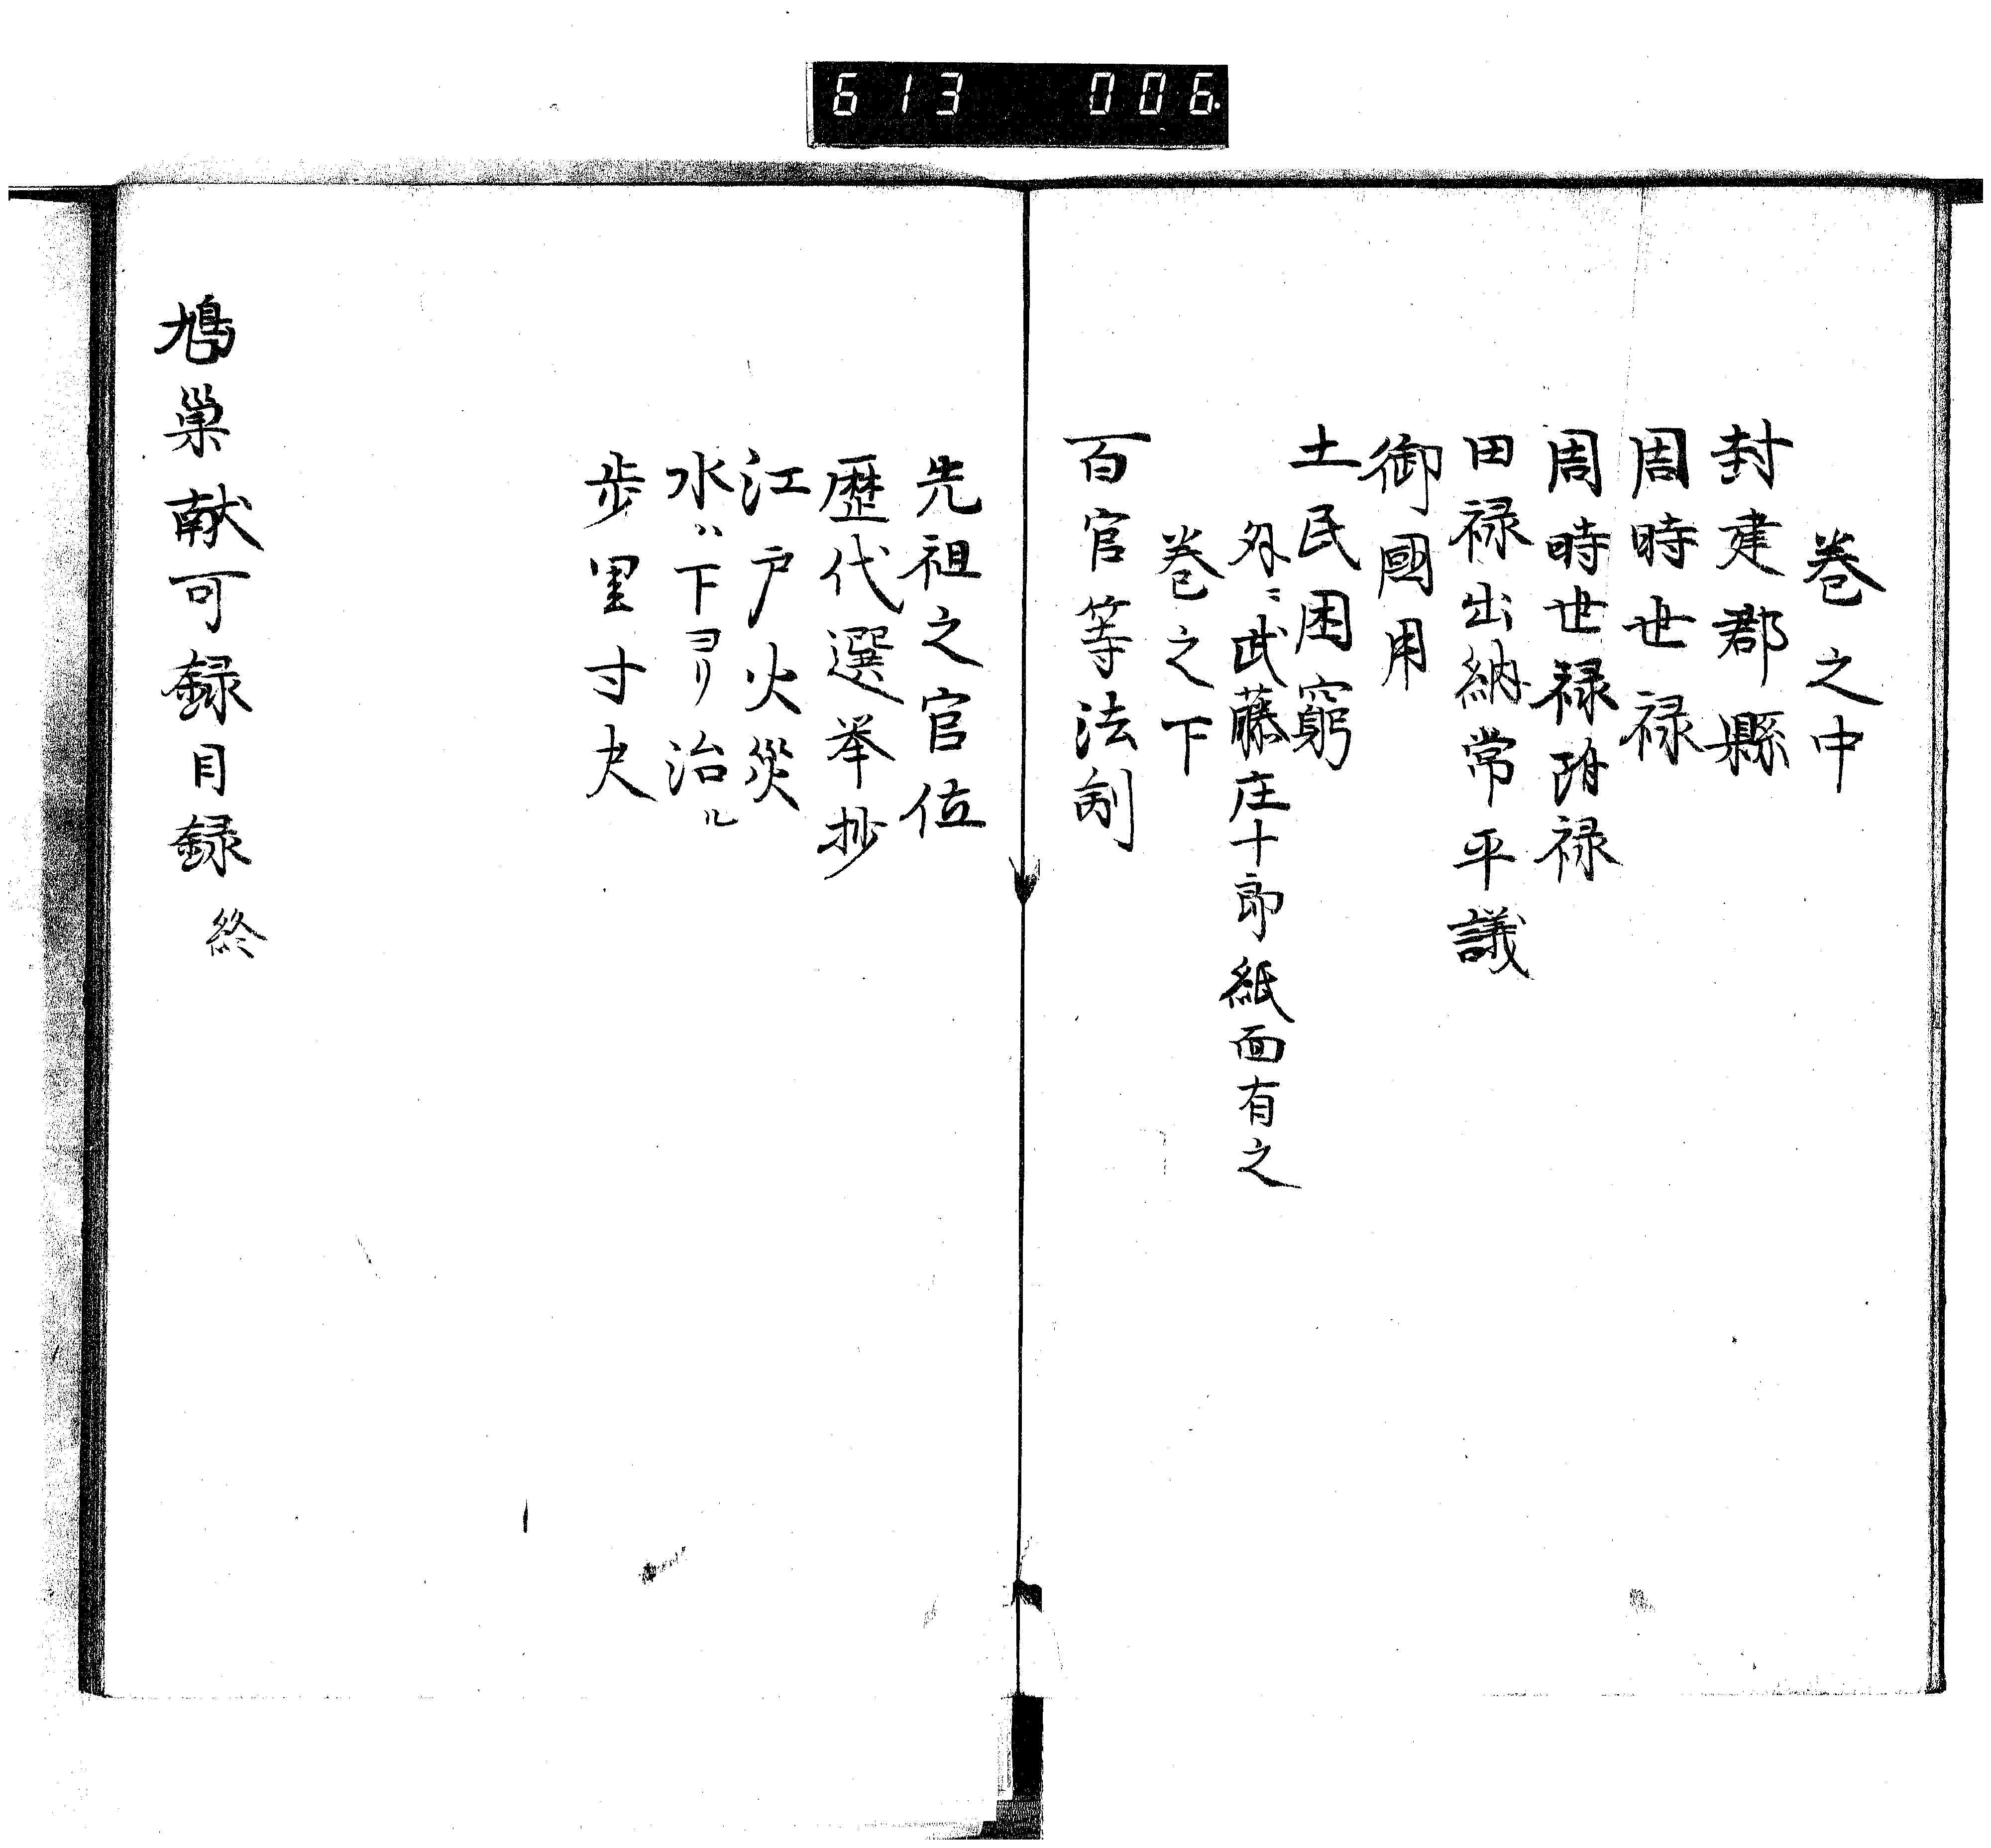 613 006
巻之中
封建郡縣
周時世禄
周時世禄附禄
田禄出納常平議
御國用
土民困窮
外ニ武藤庄十郎紙面有之
巻之下
百官等法制
先祖之官位
歴代選挙抄
江戸火災
水ハ下ヨリ治ル
歩里寸尺
鳩巣献可録目録 終